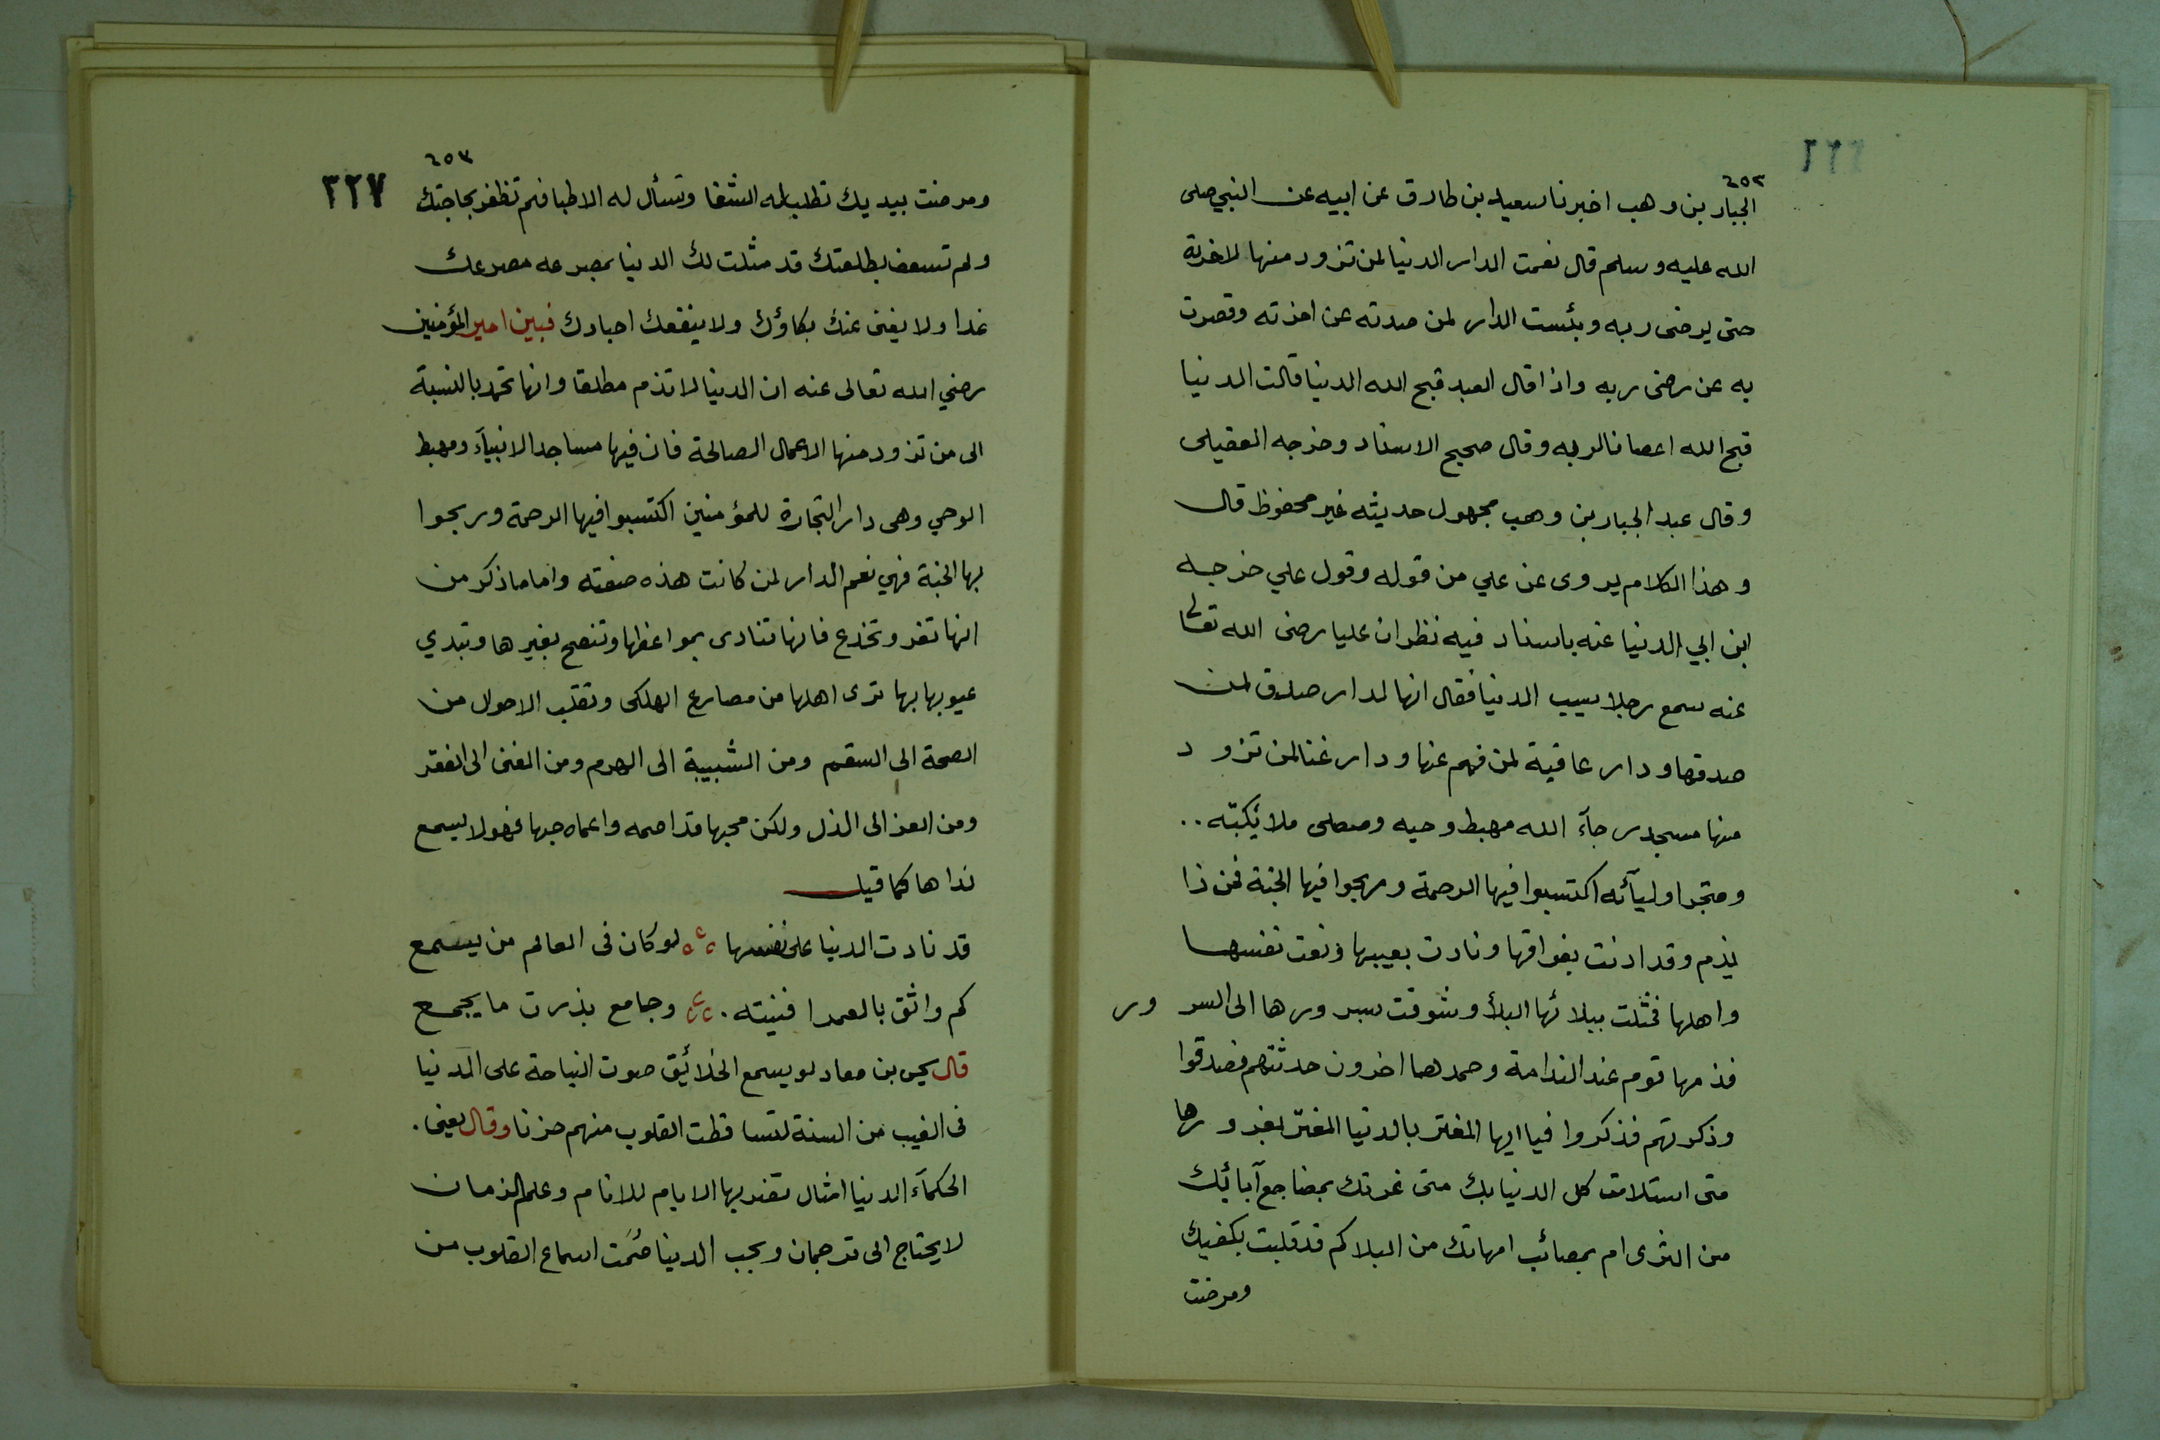 ٢٥٣
الجبار بن وهب اخبرنا سعيد بن طارق عن ابيه عن النبي صلى
الله عليه وسلم قال نعمت الدار الدنيا لمن تزود منها لاخرته
حتى يرضى ربه وبئست الدار لمن صدته عن اخرته وقصرت
به عن رضى ربه واذا قال العبد قبح الله الدنيا قالت الدنيا
قبح الله اعصانا لربه وقال صحيح الاسناد وخرجه العقيلى
وقال عبد الجبار بن وهب مجهول حديثه غير محفوظ قال
وهذا الكلام يروى عن علي من قوله وقول علي خرجه
ابن ابي الدنيا عنه باسناد فيه نظر ان عليا رضى الله تعالى
عنه سمع رجلا يسب الدنيا فقال انها لدار صدق لمن
صدقها ودار عافية لمن فهم عنها ودار غنا لمن تزود
منها مسجد رجآء الله مهبط وحيه ومصلى ملائكته ..
ومتجر اوليآئه اكتسبوا فيها الرحمة وربحوا فيها الجنة فمن ذا
يذم وقد اذنت بفراقها ونادت بعيبها ونعت نفسها
واهلها فمثلت ببلائها البلأ وشوقت بسرورها الى السرور
فذمها قوم عند الندامة وحمدها اخرون حدثتهم فصدقوا
وذكرتهم فذكروا فيا ايها المغتر بالدنيا المغتر بغرورها
متى استلامت كل الدنيا بك متى غرتك بمضاجع آبائك
من الثرى ام بمصائب امهاتك من البلا كم قد قلبت بكفيك
ومرضت
٢٥٣
٣٢٧
ومرضت بيديك تطلب له الشفا وتسأل له الاطبا فلم تظفر بحاجتك
ولم تسعف بطلعتك قد مثلت لك الدنيا بمصرعه مصرعك
غدا ولا يغنى عنك بكاؤك ولا ينفعك احبادك فبين امير المؤمنين
رضي الله تعالى عنه ان الدنيا لا تذم مطلقا وانها تحمد بالنسبة
الى من تزود منها الاعمال الصالحة فان فيها مساجد الانبيآء ومهبط
الوحي وهى دار التجارة للمؤمنين اكتسبوا فيها الرحمة وربحوا
بها الجنة فهي نعم الدار لمن كانت هذه صفته واما ما ذكر من
انها تغر وتخدع فانها تنادى بمواعظها وتنصح بغيرها وتبدي
عيوبها بها ترى اهلها من مصارع الهلكى وتقلب الاحوال من
الصحة الى السقم ومن الشبيبة الى الهرم ومن الغنى الى الفقر
ومن العز الى الذل ولكن محبها قد اصمه واعماه حبها فهو لا يسمع
نداها كما قيل
قد نادت الدنيا على نفسها لو كان فى العالم من يسمع
كم واثق بالعمر افنيته . وجامع بذرت ما يجمع
قال يحى بن معاد لو يسمع الخلائق صوت النياحة على الدنيا
فى الغيب من السنة لتساقطت القلوب منهم حزنا وقال يعنى .
الحكمآء الدنيا امثال تضربها الايام للانام وعلم الزمان
لا يحتاج الى ترجمان وبحب الدنيا صمت اسماع القلوب من